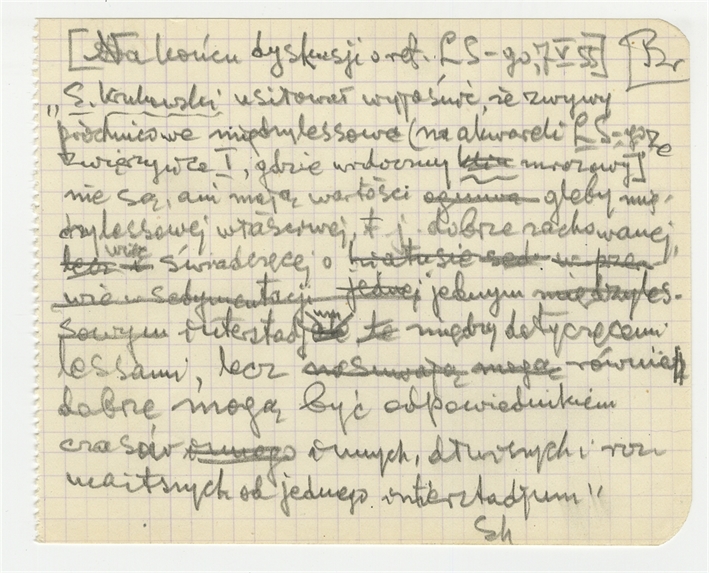 [Na końcu dyskusji o ref. LS-go, 7 V 55] Br
„S. Krukowski usitował wyjaśnić, że zmywy
próchnicowe międzylessowe (na akwareli LS-go ze
Zwierzyńca I, gdzie widoczny klin mrozowy]
nie są, ani mają wartości ogniwa gleby mię-
dzylessowej właściwej, t. j. dobrze zachowanej,
lecz i więc świadczącej o hiatusie sed w prze
wie w sedymentacji jednej jednym międzyles-
sowym interstadjum te między dotyczącemi
lessami, lecz mogą również
dobrze mogą być odpowiednikiem
czasów innego innych, dłuższych i roz-
maitszych od jednego interstadjum"
Sk